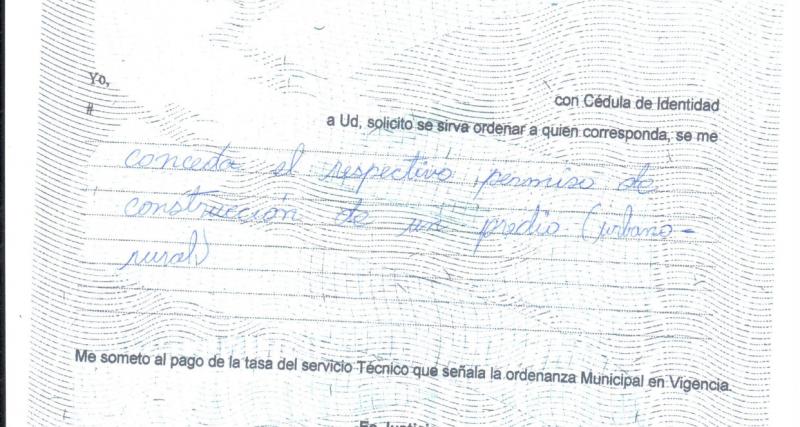 Yo,
con Cédula de Identidad
#
a Ud, solicito se sirva ordenar a quien corresponda, se me
conceda el respectivo permiso de
construcción de un predio (urbano-
rural)
Me someto al pago de la tasa del servicio Técnico que señala la ordenanza Municipal en Vigencia.